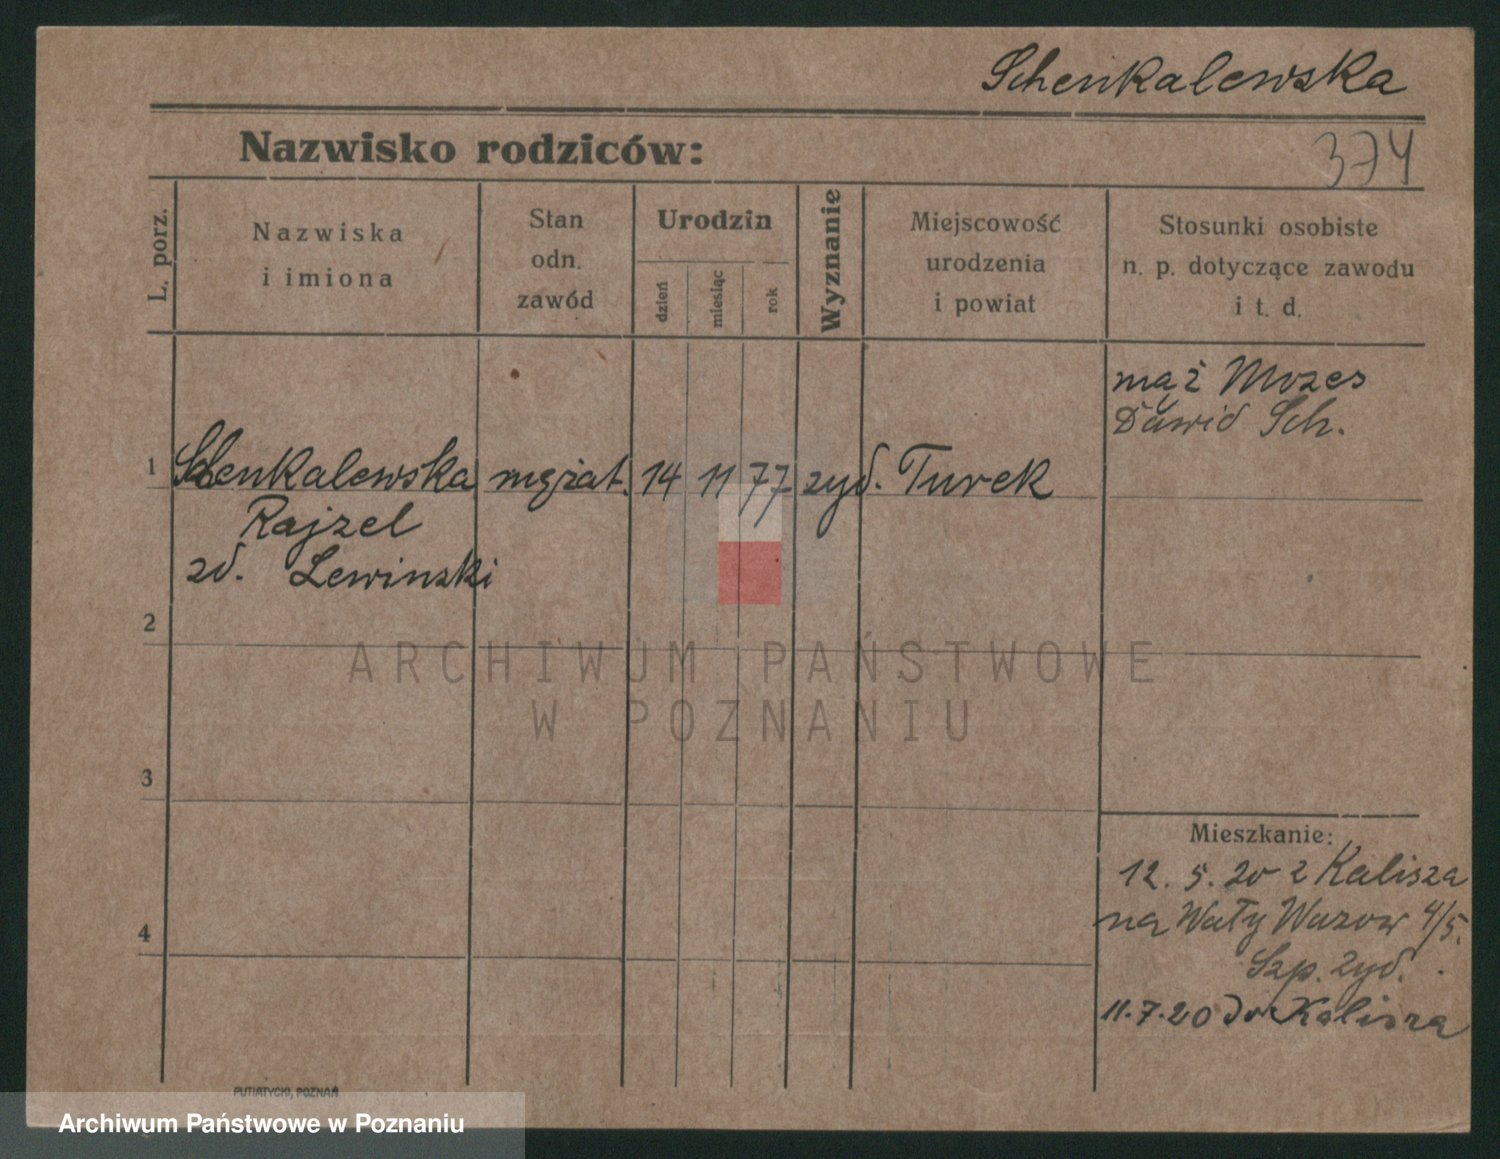 Schenkalewska
Nazwisko rodziców:
374
L. porz.
Nazwiska
i imiona
Stan
odn.
zawód
Urodzin
dzień
miesiąc
rok
Wyznanie
Miejscowość
urodzenia
i powiat
Stosunki osobiste
n. p. dotyczące zawodu
i t. d.
mąż Mozes
Dawid Sch.
1 Schenkalewska mężat. 14 11 77 żyd. Turek
Rajzel
zd. Lewinski
2
ARCHIWUM PAŃSTWOWE
W POZNANIU
3
Mieszkanie:
12. 5. 20 z Kalisza
na Wały Wazow 4/5.
4
Szp. żyd.
11.7.20 do Kalisza
PUTIATYCKI, POZNAŃ
Archiwum Państwowe w Poznaniu